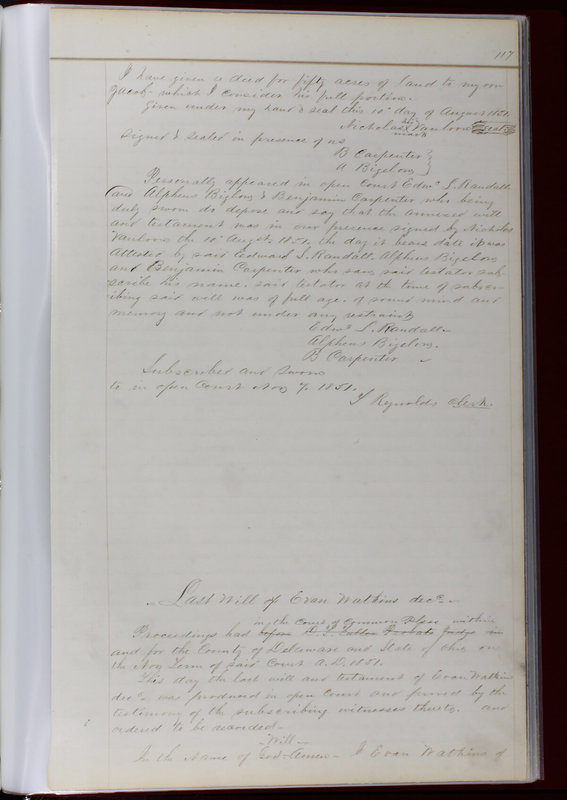 117
I have given a deed for fifty acres of land to my son
Jacob- which I consider his full portion.
Given under my hand & seal this 10th day of August 1851.
Nicholas his mark Vanhorn seal
Signed & sealed in presence of us
B Carpenter
A Bigelow
Personally appeared in open Court Edwd L. Randall
and Alpheus Biglow & Benjamin Carpenter who being
duly sworn do depose and say that the annexed will
and testament was in our presence signed by Nicholas
Vanhorn the 10th August 1851, the day it bears date it was
attested by said Edward L. Randall, Alpheus Bigelow
and Benjamin Carpenter who saw said testator sub-
scribe his name. said testator at the time of subscri-
ibing said will was of full age, of sound mind and
memory and not under any restraint
Edwd L. Randall
Alpheus Bigelow.
B Carpenter
Subscribed and sworn
to in open Court Nov 1851.
Reynolds Clerk.
Last Will of Evan Watkins decd
in the Court of Common Pleas within
Proceedings had before Probate Judge in
and for the County of Delaware and State of Ohio on
the Nov Term of said Court A.D. 1851.
This day the last will and testament of Evan Watkins
decd, was produced in open Court and proved by the
testimony of the subscribing witnesses thereto. and
ordered to be recorded
Will
In the Name of God-Amen- I Evan Watkins of